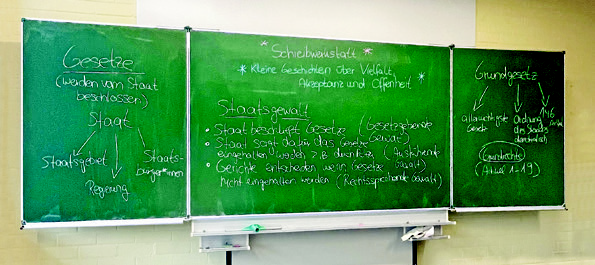 Gesetze
(werden vom Staat
beschlossen)
Staat
Staatsgebiet
Regierung
Staats-
bürger*innen
* Schreibwerkstatt *
* Kleine Geschichten über Vielfalt,
Akzeptanz und Offenheit *
Staatsgewalt
• Staat beschließt Gesetze (Gesetzgebende Gewalt)
• Staat sorgt dafür, das Gesetze
eingehalten werden z.B. durch (Ausführende Gewalt)
• Gerichte entscheiden wenn Gesetze
nicht eingehalten werden (Rechtssprechende Gewalt)
Grundgesetz
allerwichtigste
Gesetz
Ordnung
des Staates
146
Grundrechte
(Artikel 1-19)